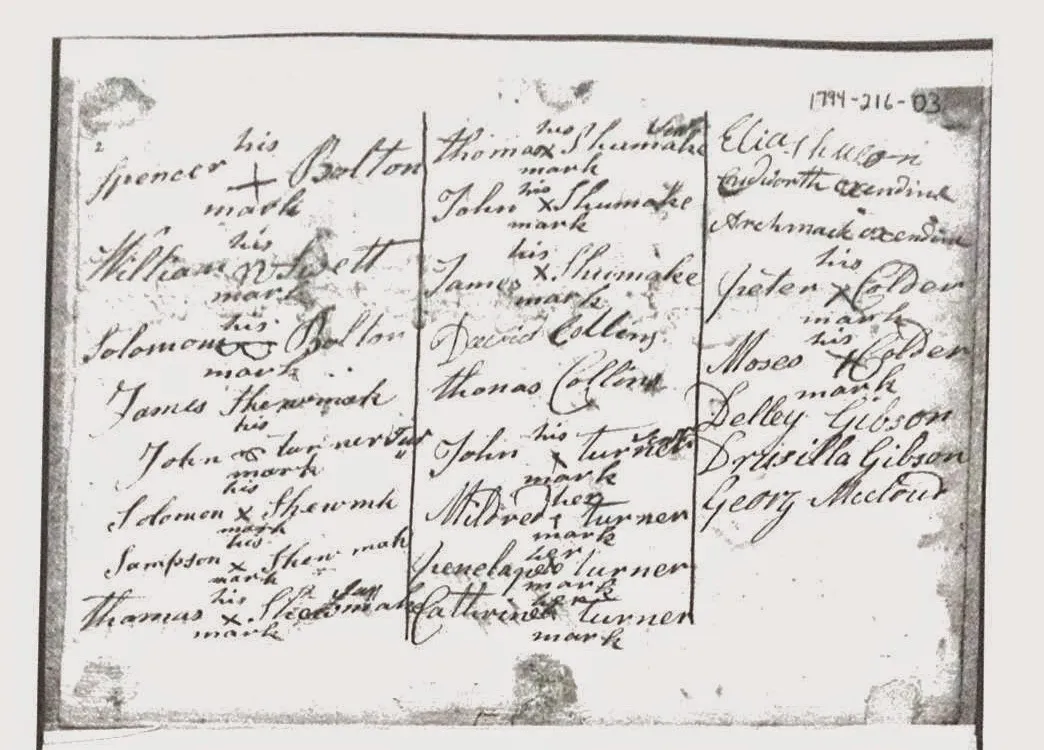 1794-216-03
2
his
Spencer + Bolton
mark
his
William Swett
mark
his
Solomon Bolton
mark
James Shewmak
his
John x turner Jur
mark
his
Solomon x Shewmk
mark
his
Sampson x Shewmak
mark
his Jur
thomas x Shewmake
mark
his
thomas x Shumake
mark
his
John x Shumake
mark
his
James x Shumake
mark
David Collins
thomas Collins
his
John x turner
mark
her
Mildred turner
mark
her
penelape turner
mark
her
Cathrine turner
mark
Cudworth oxendine
Archmack oxendine
his
peter x Colder
mark
his
Moses x Colder
mark
Delley Gibson
Drusilla Gibson
Georg Mccloud